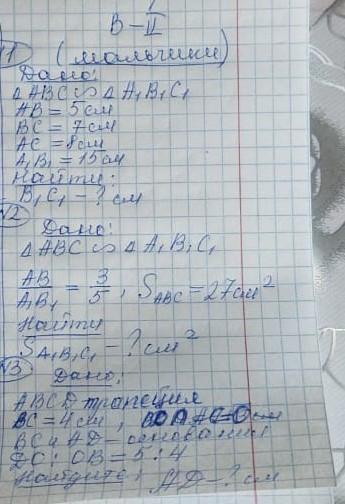 В-II
№1 (мальчики)
Дано:
△ABC ∽ △A₁B₁C₁
AB = 5см
BC = 7см
AC = 8см
A₁B₁ = 15см
Найти:
B₁C₁ - ? см
№2
Дано:
△ABC ∽ △A₁B₁C₁
AB/A₁B₁ = 3/5, S_ABC = 27см²
Найти
S_A₁B₁C₁ - ? см²
№3
Дано:
ABCD трапеция
BC = 4см,
BC и AD - основания
DO : OB = 5:4
Найдите: AD - ? см